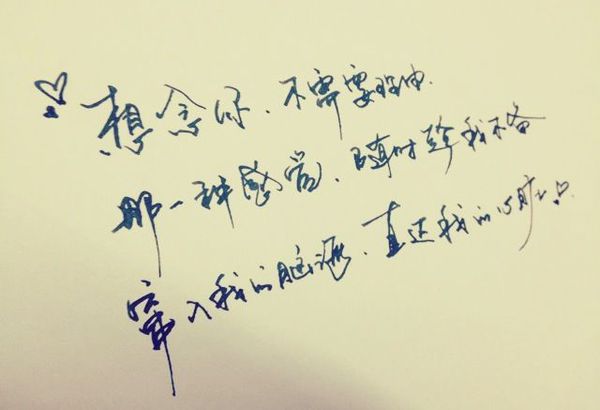 想念你、不需要理由.
那一种感觉、随时趁我不备
窜入我的脑海、直达我的心脏